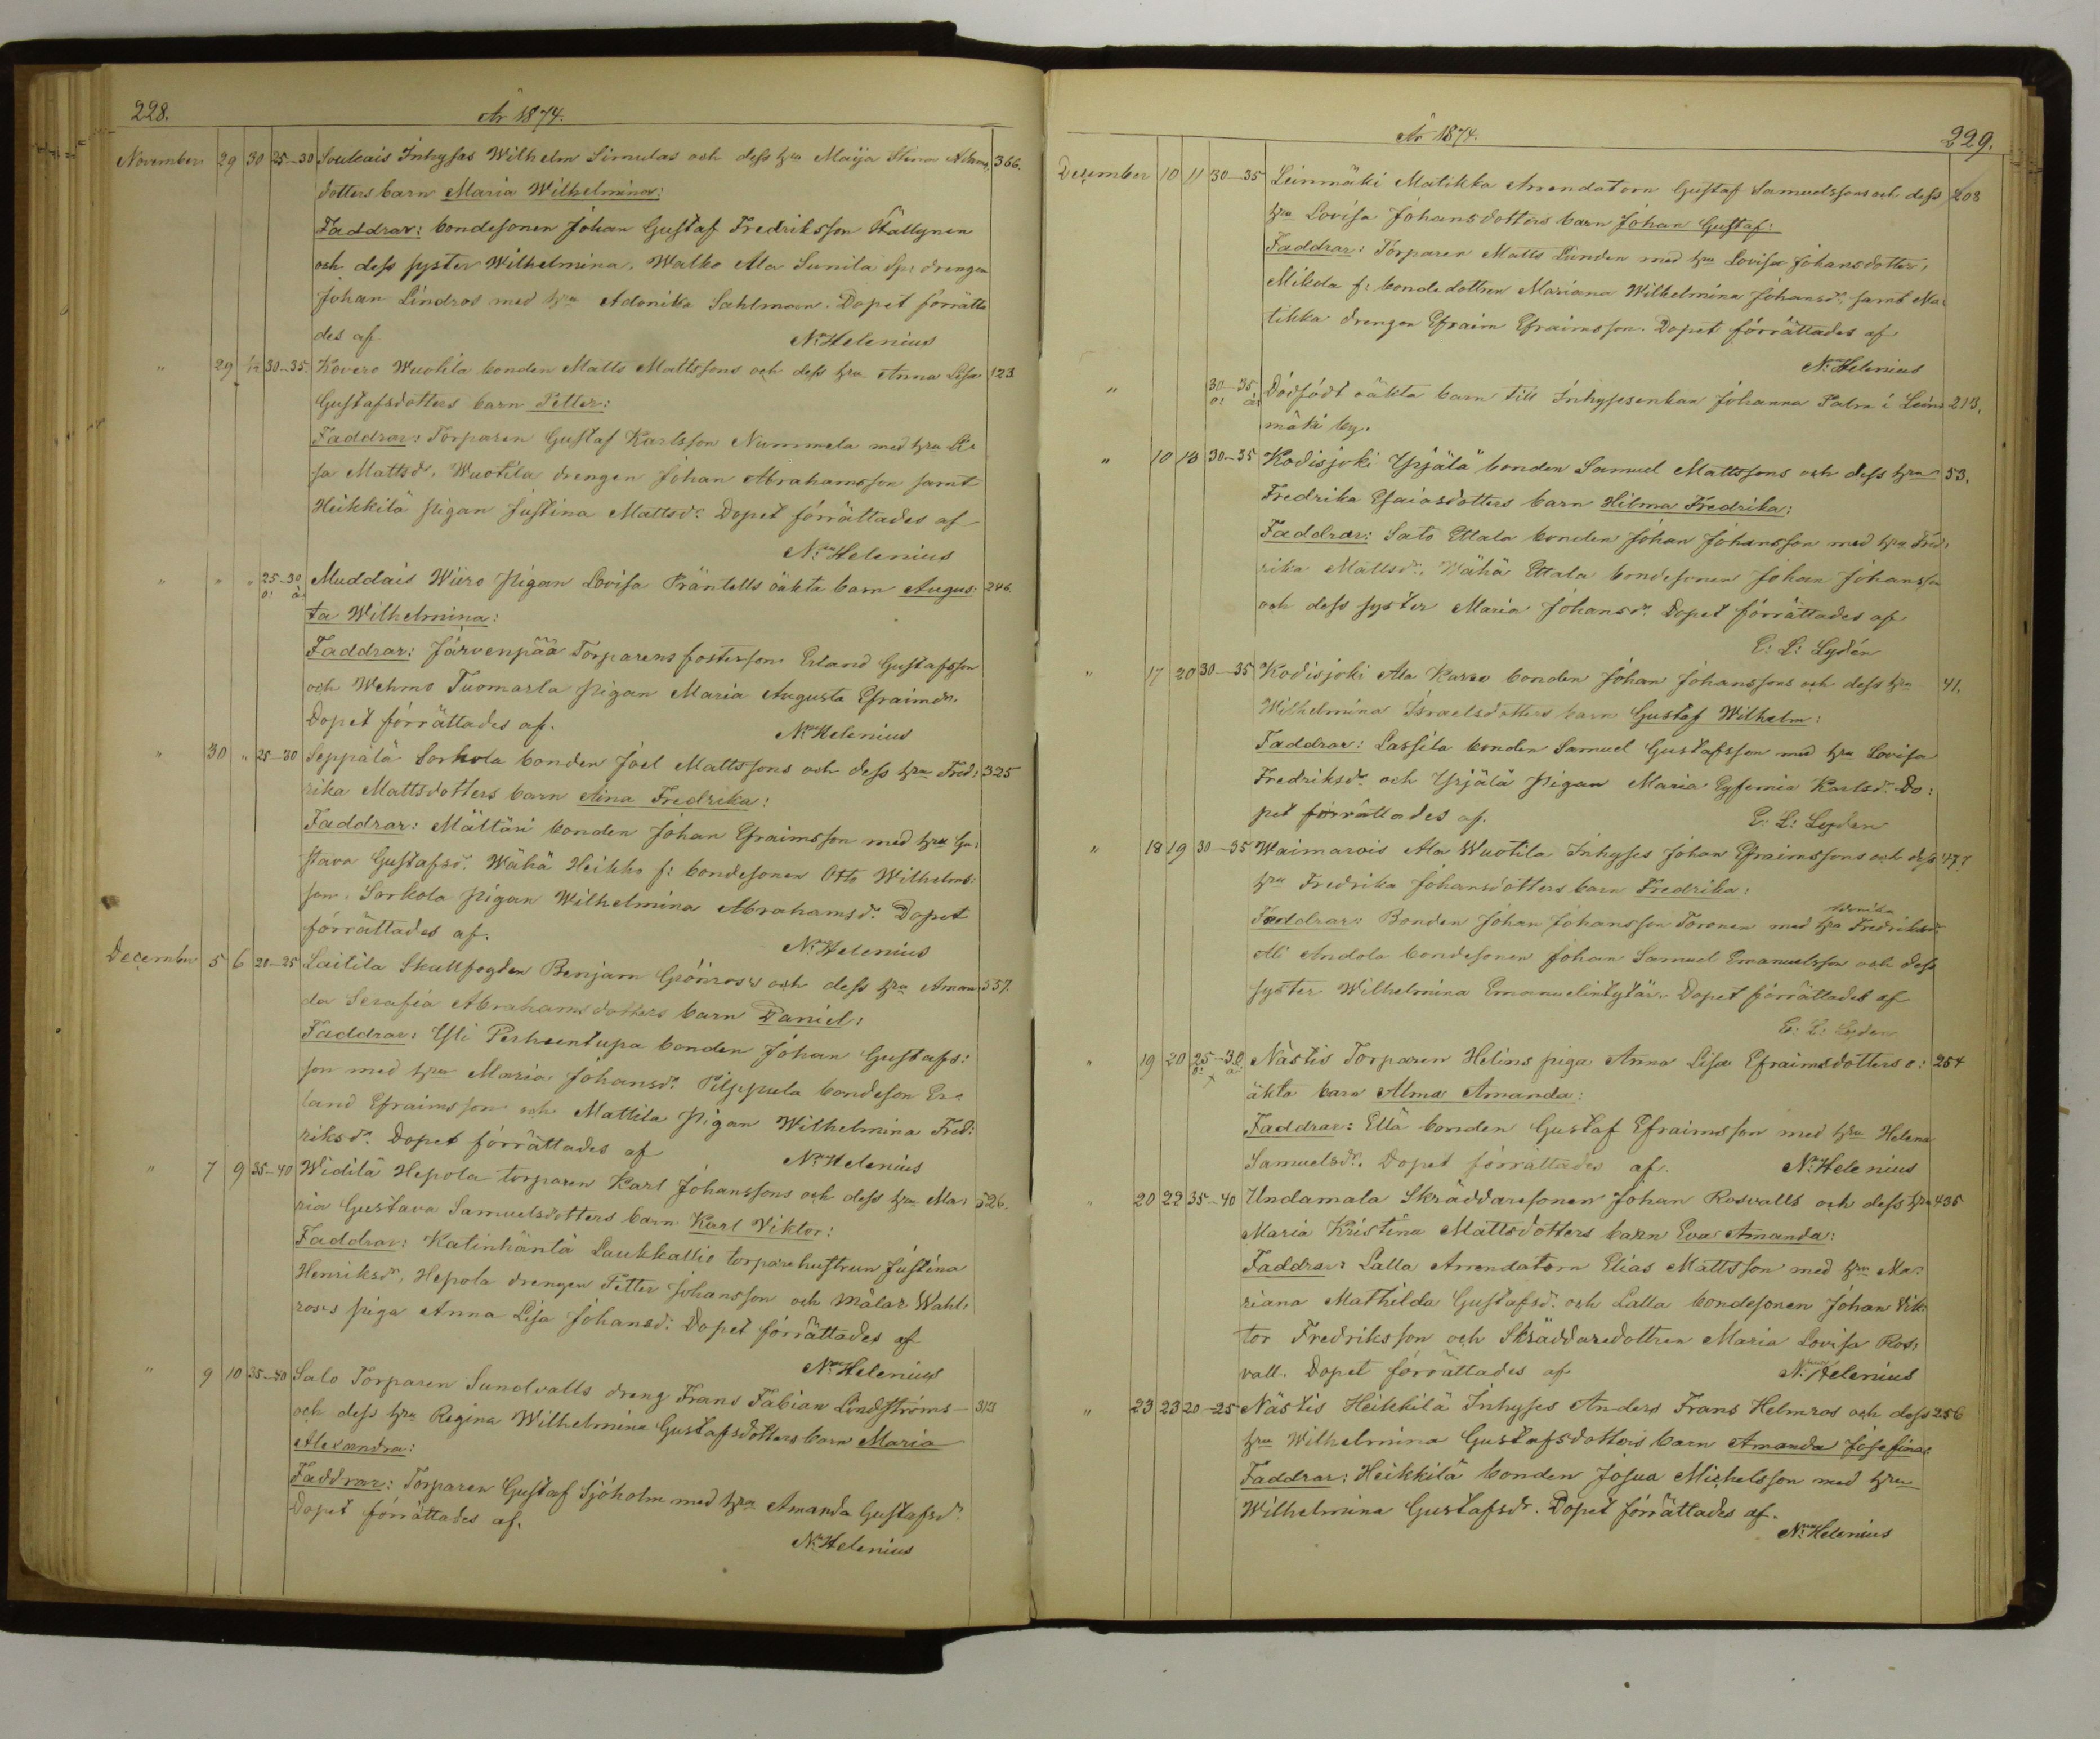 228.
År 1874.
November 29 30 25–30 Soukais Inhyses Wilhelm Simulas och dess hru Maija Stina Adams 366.
dotters barn Maria Wilhelmina:
Faddrar: bondesonen Johan Gustaf Fredriksson
och dess syster Wilhelmina. Walko Ala Sunila drengen
Johan Lindros med hru Adonika Sahlman. Dopet förrätta
des af N. Helenius
" 29 30–35. Kovero Wuotila bonden Matts Mattssons och dess hru Anna Lisa 123
Gustafsdotters barn Petter:
Faddrar: Torparen Gustaf Karlsson Nummela med hru Li-
sa Mattsdr. Wuotila drengen Johan Abrahamsson samt
Heikkilä pigan Justina Mattsdr. Dopet förrättades af
N. Helenius
" " " 25–30 Muddais Wiiro pigan Lovisa Präntells oäkta barn Augus: 246.
o: ä:
ta Wilhelmina:
Faddrar: Järvenpää Torparens fosterson Erland Gustafsson
och Wehmo Tuomarla pigan Maria Augusta Efraimdr.
Dopet förrättades af. N. Helenius
" 30 " 25–30 Seppälä Sorkola bonden Joel Mattssons och dess hru Fred: 325
rika Mattsdotters barn Aina Fredrika:
Faddrar: Mättäri bonden Johan Efraimsson med hru Gu:
stava Gustafsdr. Wähä Heikko f: bondesonen Otto Wilhelms:
son. Sorkola pigan Wilhelmina Abrahamsdr. Dopet
förrättades af. N. Helenius
December 5 6 20–25 Laitila Skallfogden Benjam Grönroos's och dess hru Aman 557.
da Serafia Abrahamsdotters barn Daniel:
Faddrar: Yli Perhentupa bonden Johan Gustafs:
son med hru Maria Johansdr. Pilppula bondeson Er:
land Efraimsson och Mattila pigan Wilhelmina Fred:
riksdr. Dopet förrättades af N. Helenius
" 7 9 35–40 Widilä Hepola torparen Karl Johanssons och dess hru Ma: 526.
ria Gustava Samuelsdotters barn Karl Viktor:
Faddrar: Katinhäntä Laukkallio torparehustrun Justina
Henriksdr, Hepola drengen Petter Johansson och Målar Wahl:
roos's piga Anna Lisa Johansdr. Dopet förrättades af
N. Helenius
" 9 10 35–40 Salo Torparen Sundvalls dreng Frans Fabian Lindströms – 313
och dess hru Regina Wilhelmina Gustafsdotters barn Maria
Alexandra:
Faddrar: Torparen Gustaf Sjöholm med hru Amanda Gustafsdr.
Dopet förrättades af.
N. Helenius
År 1874.
229.
December 10 11 30–35 Leinmäki Matikka Arrendatorn Gustaf Samuelssons och dess 208
hru Lovisa Johansdotters barn Johan Gustaf:
Faddrar: Torparen Matts Lunden med hru Lovisa Johansdotter,
Mikola f: bondedottren Mariana Wilhelmina Johansdr, samt Ma:
tikka drengen Efraim Efraimsson. Dopet förrättades af
N. Helenius
" 30–35 Dödfödt oäkta barn till Inhysesenkan Johanna Palm i Lein: 213.
o: ä:
mäki by.
" 10 13 30–35 Kodisjoki Yrjälä bonden Samuel Mattssons och dess hru 53.
Fredrika Esaiasdotters barn Hilma Fredrika:
Faddrar: Sato Ettala bonden Johan Johansson med hru Fred:
rika Mattsdr, Wähä Ettala bondesonen Johan Johansson
och dess syster Maria Johansdr. Dopet förrättades af
E: L: Lydén
" 17 20 30–35 Kodisjoki Ala Karro bonden Johan Johanssons och dess hru 41.
Wilhelmina Israelsdotters barn Gustaf Wilhelm:
Faddrar: Lassila bonden Samuel Gustafsson med hru Lovisa
Fredriksdr. och Yrjälä pigan Maria Eyfemia Karlsdr. Do:
pet förrättades af. E: L: Lydén
" 18 19 30–35 Waimarois Ala Wuotila Inhyses Johan Efraimssons och dess 477.
hru Fredrika Johansdotters barn Fredrika:
Adonika
Faddrar: Bonden Johan Johansson Toronen med hru Fredriksdr.
Ali Andola bondesonen Johan Samuel Emanuelsson och dess
syster Wilhelmina Emanuelintytär. Dopet förrättades af
E: L: Lydén
" 19 20 25–30 Nästis Torparen Helins piga Anna Lisa Efraimsdotters o: 254
o: ä:
äkta barn Alma Amanda:
Faddrar: Ellä bonden Gustaf Efraimsson med hru Helena
Samuelsdr. Dopet förrättades af. N. Helenius
" 20 22 35–40 Undamala Skräddaresonen Johan Rosvalls och dess hru 435
Maria Kristina Mattsdotters barn Eva Amanda:
Faddrar: Lalla Arrendatorn Elias Mattsson med hru Ma:
riana Mathilda Gustafsdr. och Lalla bondesonen Johan Vik:
tor Fredriksson och Skräddaredottren Maria Lovisa Ros:
vall. Dopet förrättades af N. Helenius
" 23 23 20–25 Nästis Heikkilä Inhyses Anders Frans Helmros och dess 256
hru Wilhelmina Gustafsdotters barn Amanda Josefina:
Faddrar: Heikkilä bonden Josua Michelsson med hru
Wilhelmina Gustafsdr. Dopet förrättades af.
N. Helenius